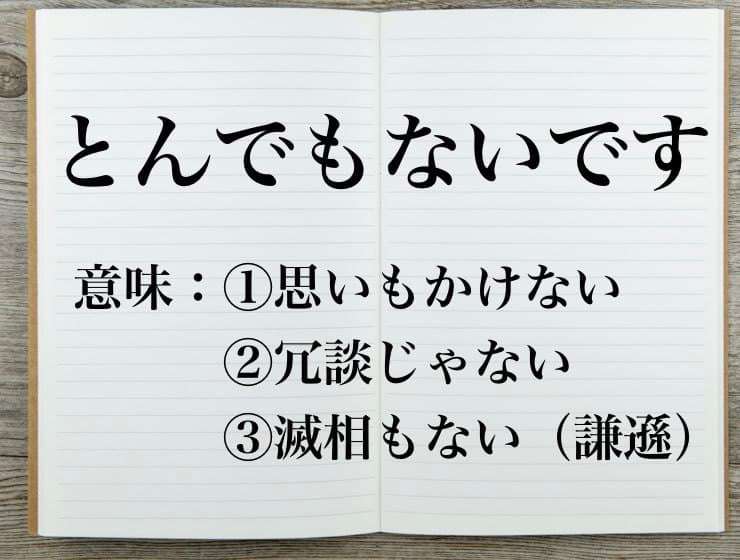 とんでもないです
意味：①思いもかけない
②冗談じゃない
③滅相もない（謙遜）